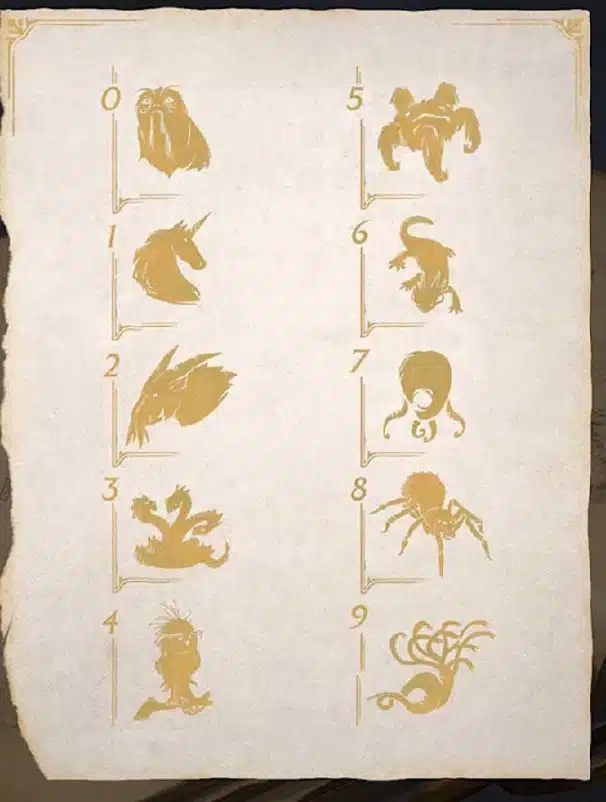 0
5
1
6
2
7
3
8
4
9